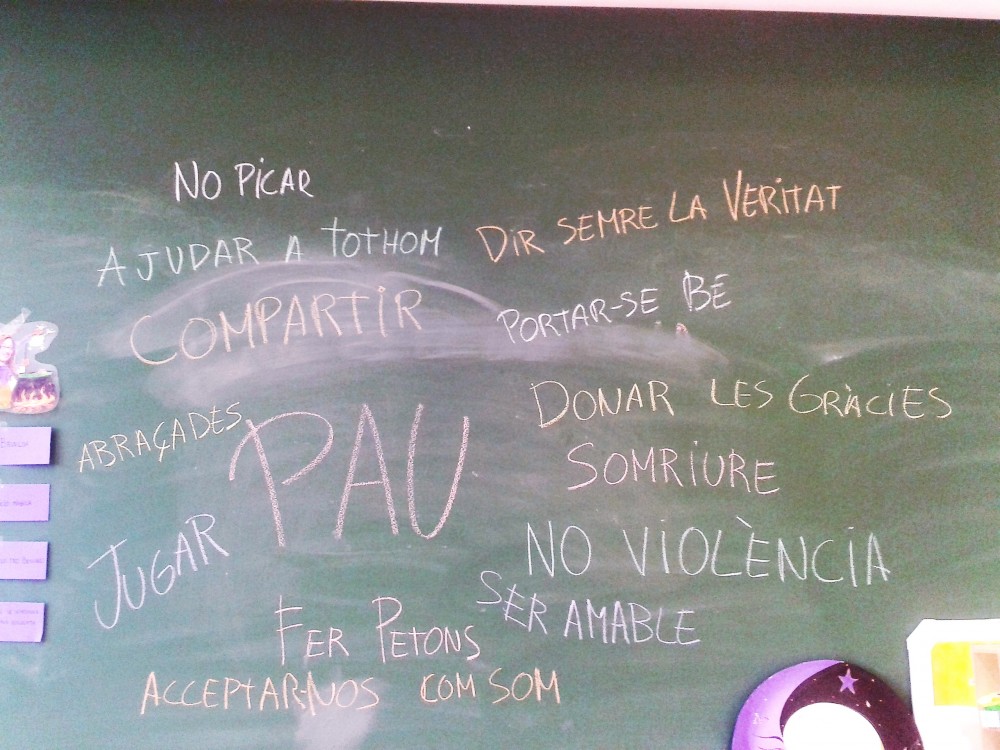 NO PiCAR
AJUDAR A TOTHOM
DiR SEMRE LA VERiTAT
COMPARTiR
PORTAR-SE BÉ
DONAR LES GRÀCiES
ABRAÇADES
PAU
SOMRiURE
JUGAR
NO ViOLÈNCiA
SER AMABLE
FER PETONS
ACCEPTAR-NOS COM SOM